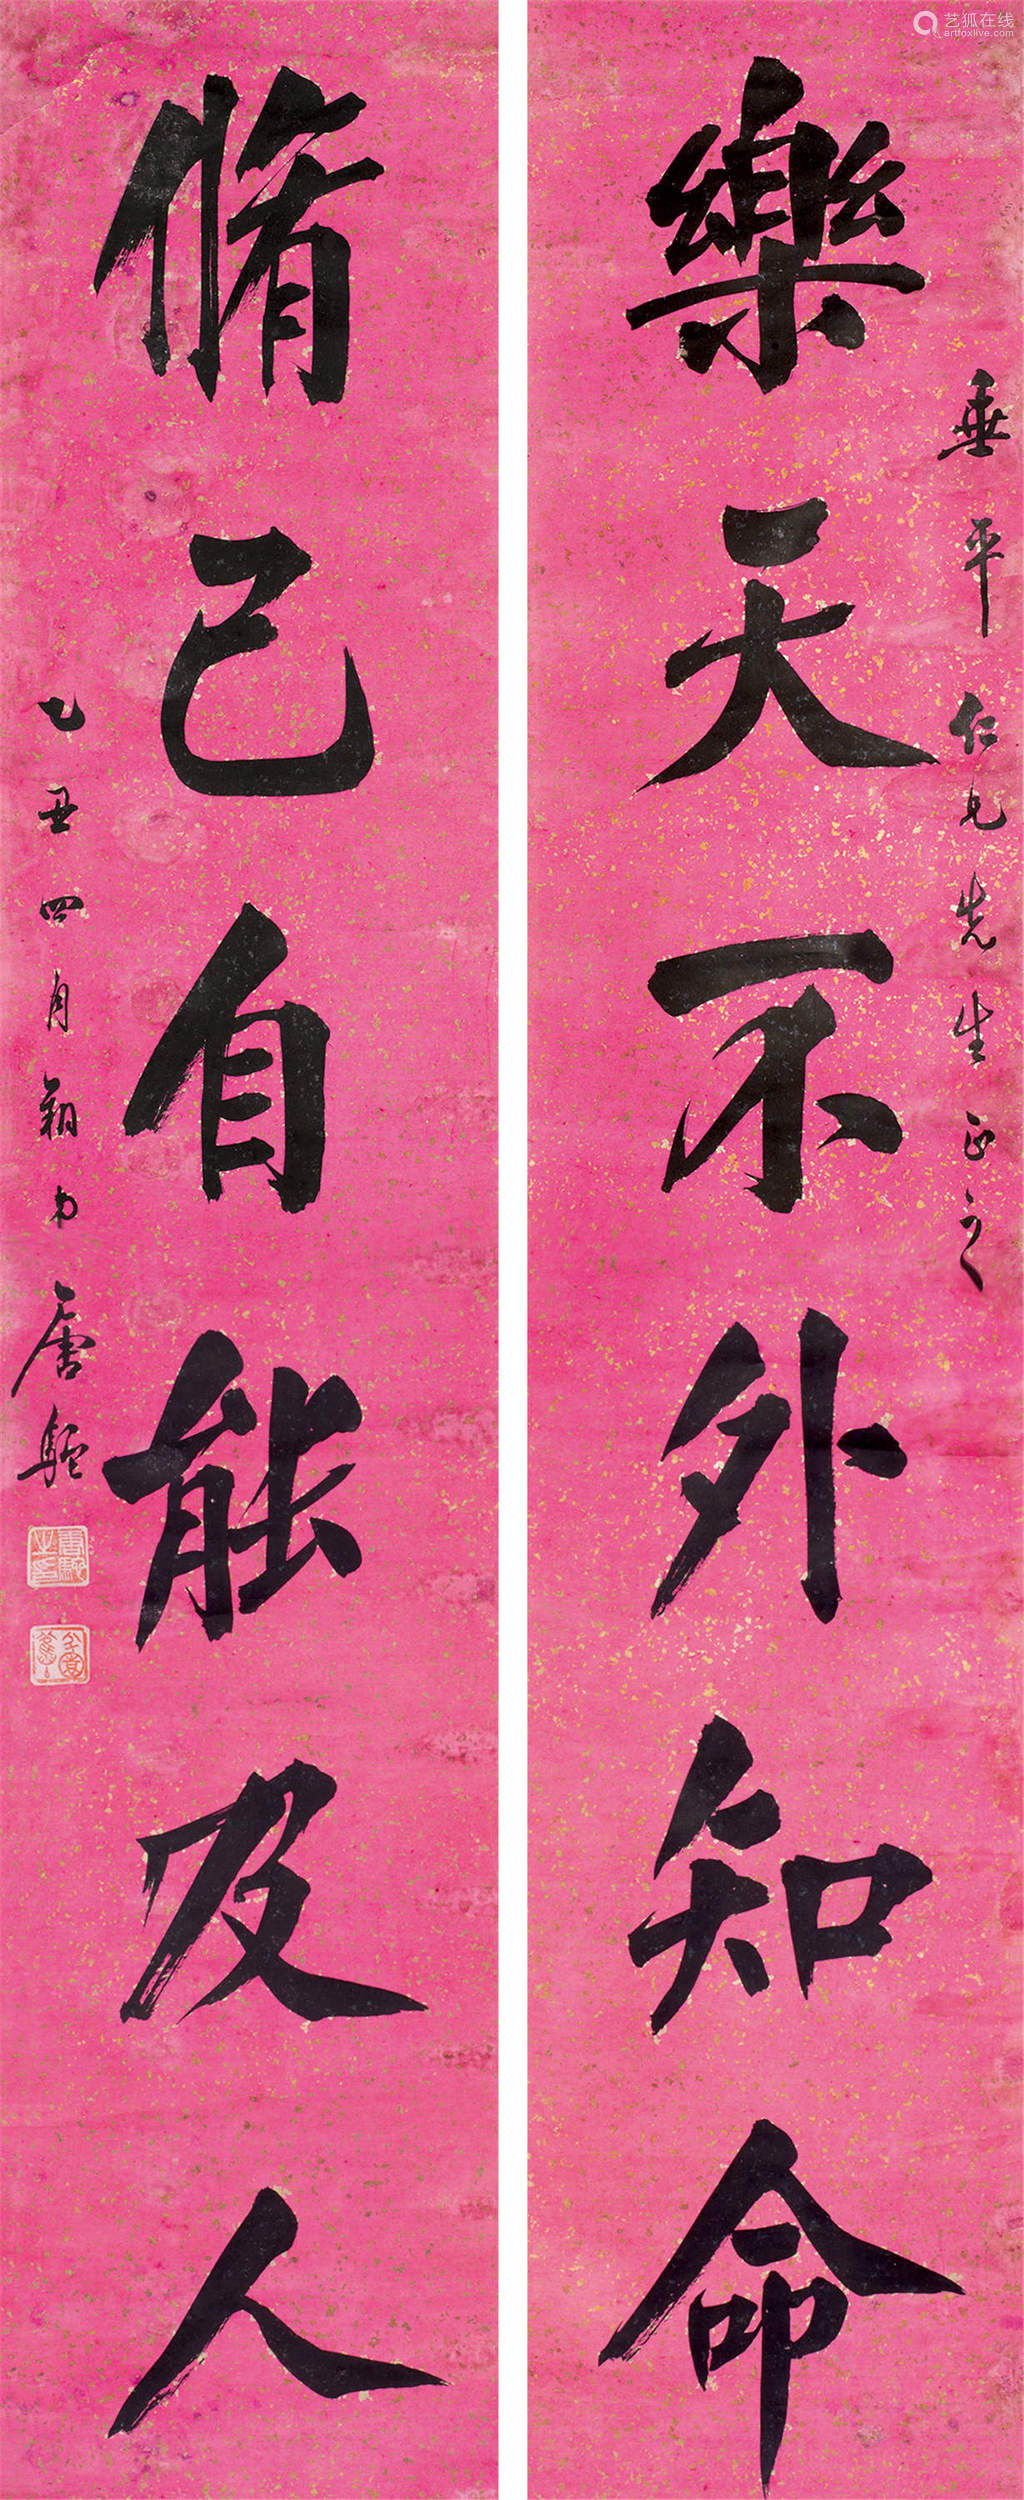 艺狐在线
artfoxlive.com
垂平仁兄先生正之
樂天不外知命
脩己自能及人
乙丑四月
唐駝
唐駝之印